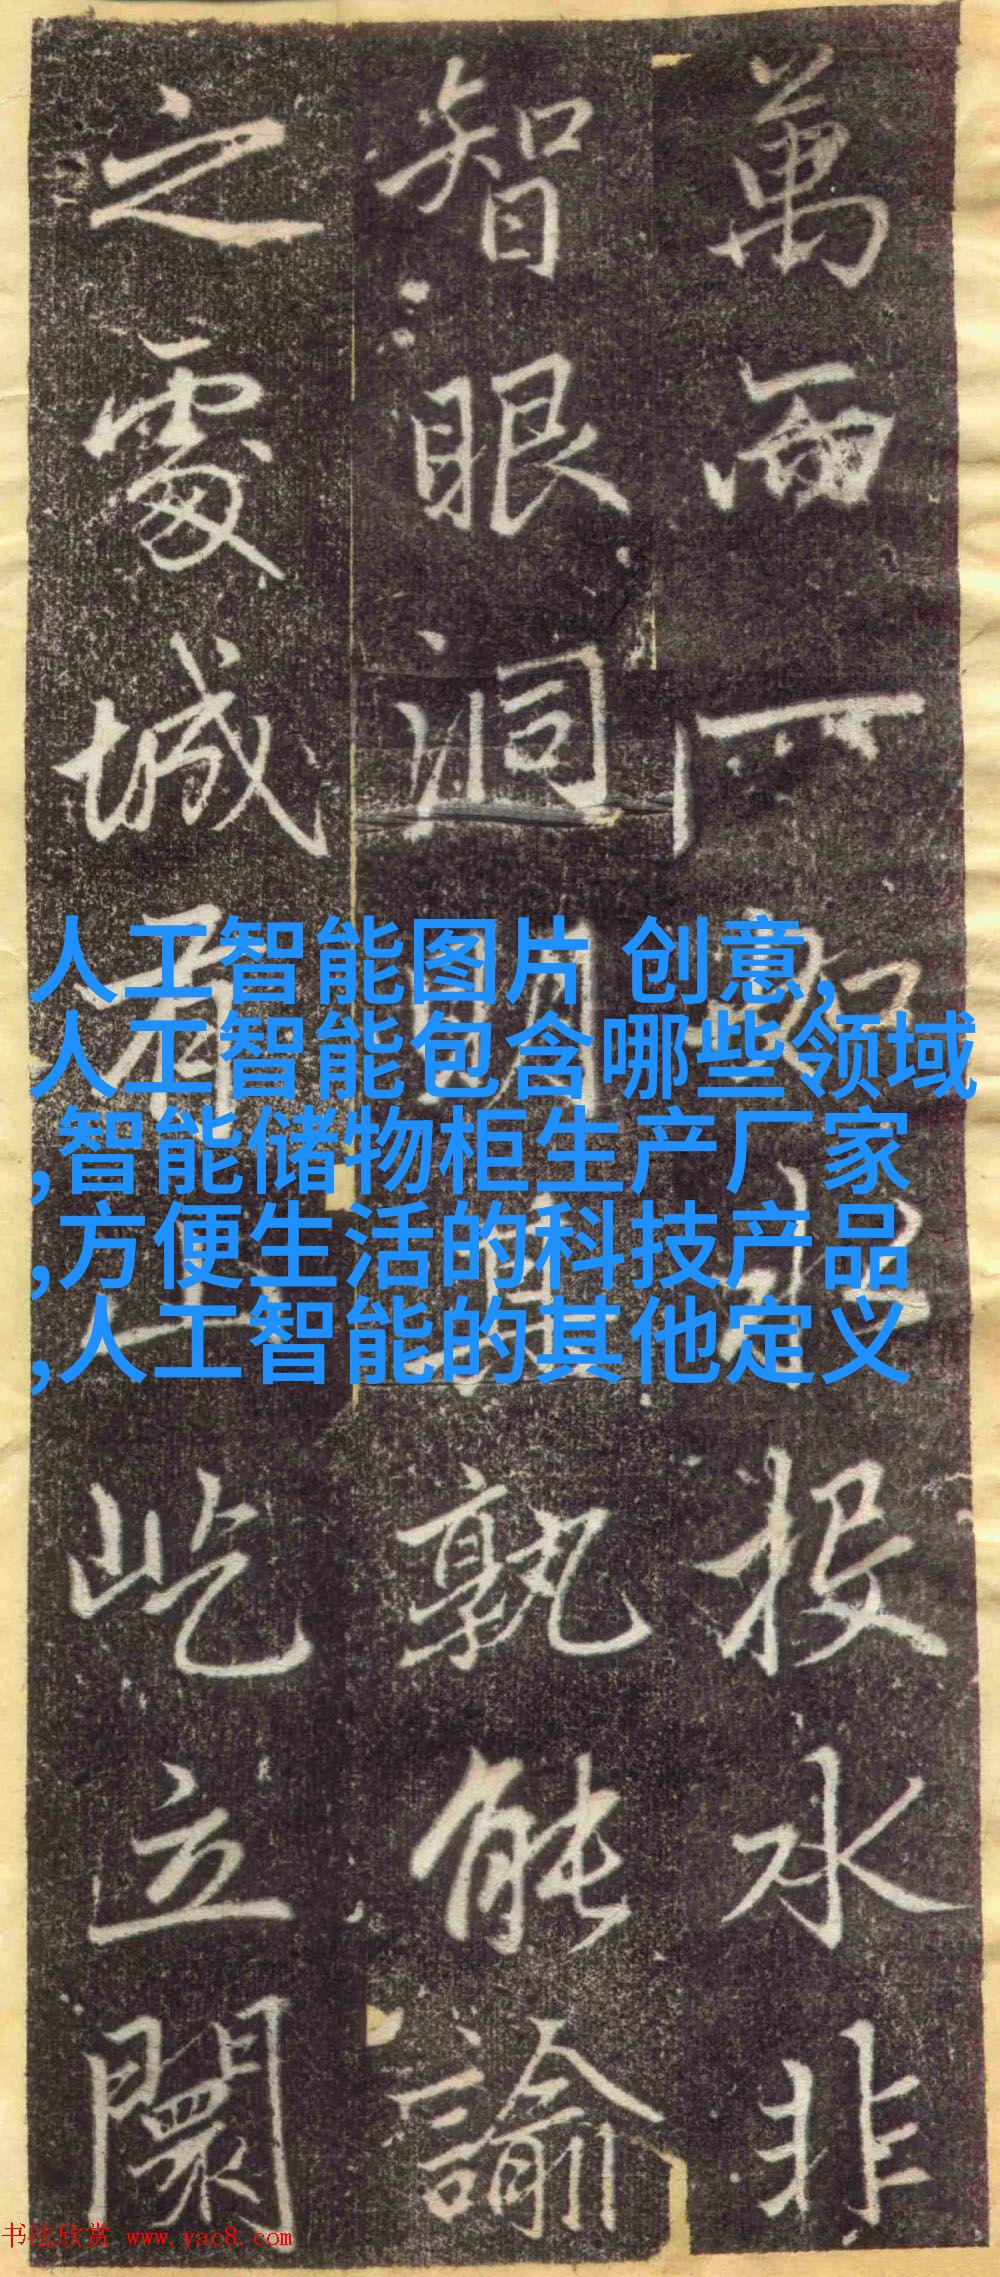 萬而一投水非
智眼洞明孰能諭
之處城屹立闤
人工智能图片 创意,
人工智能包含哪些领域
,智能储物柜生产厂家
,方便生活的科技产品
,人工智能的其他定义
书法欣赏 www.yac8.com